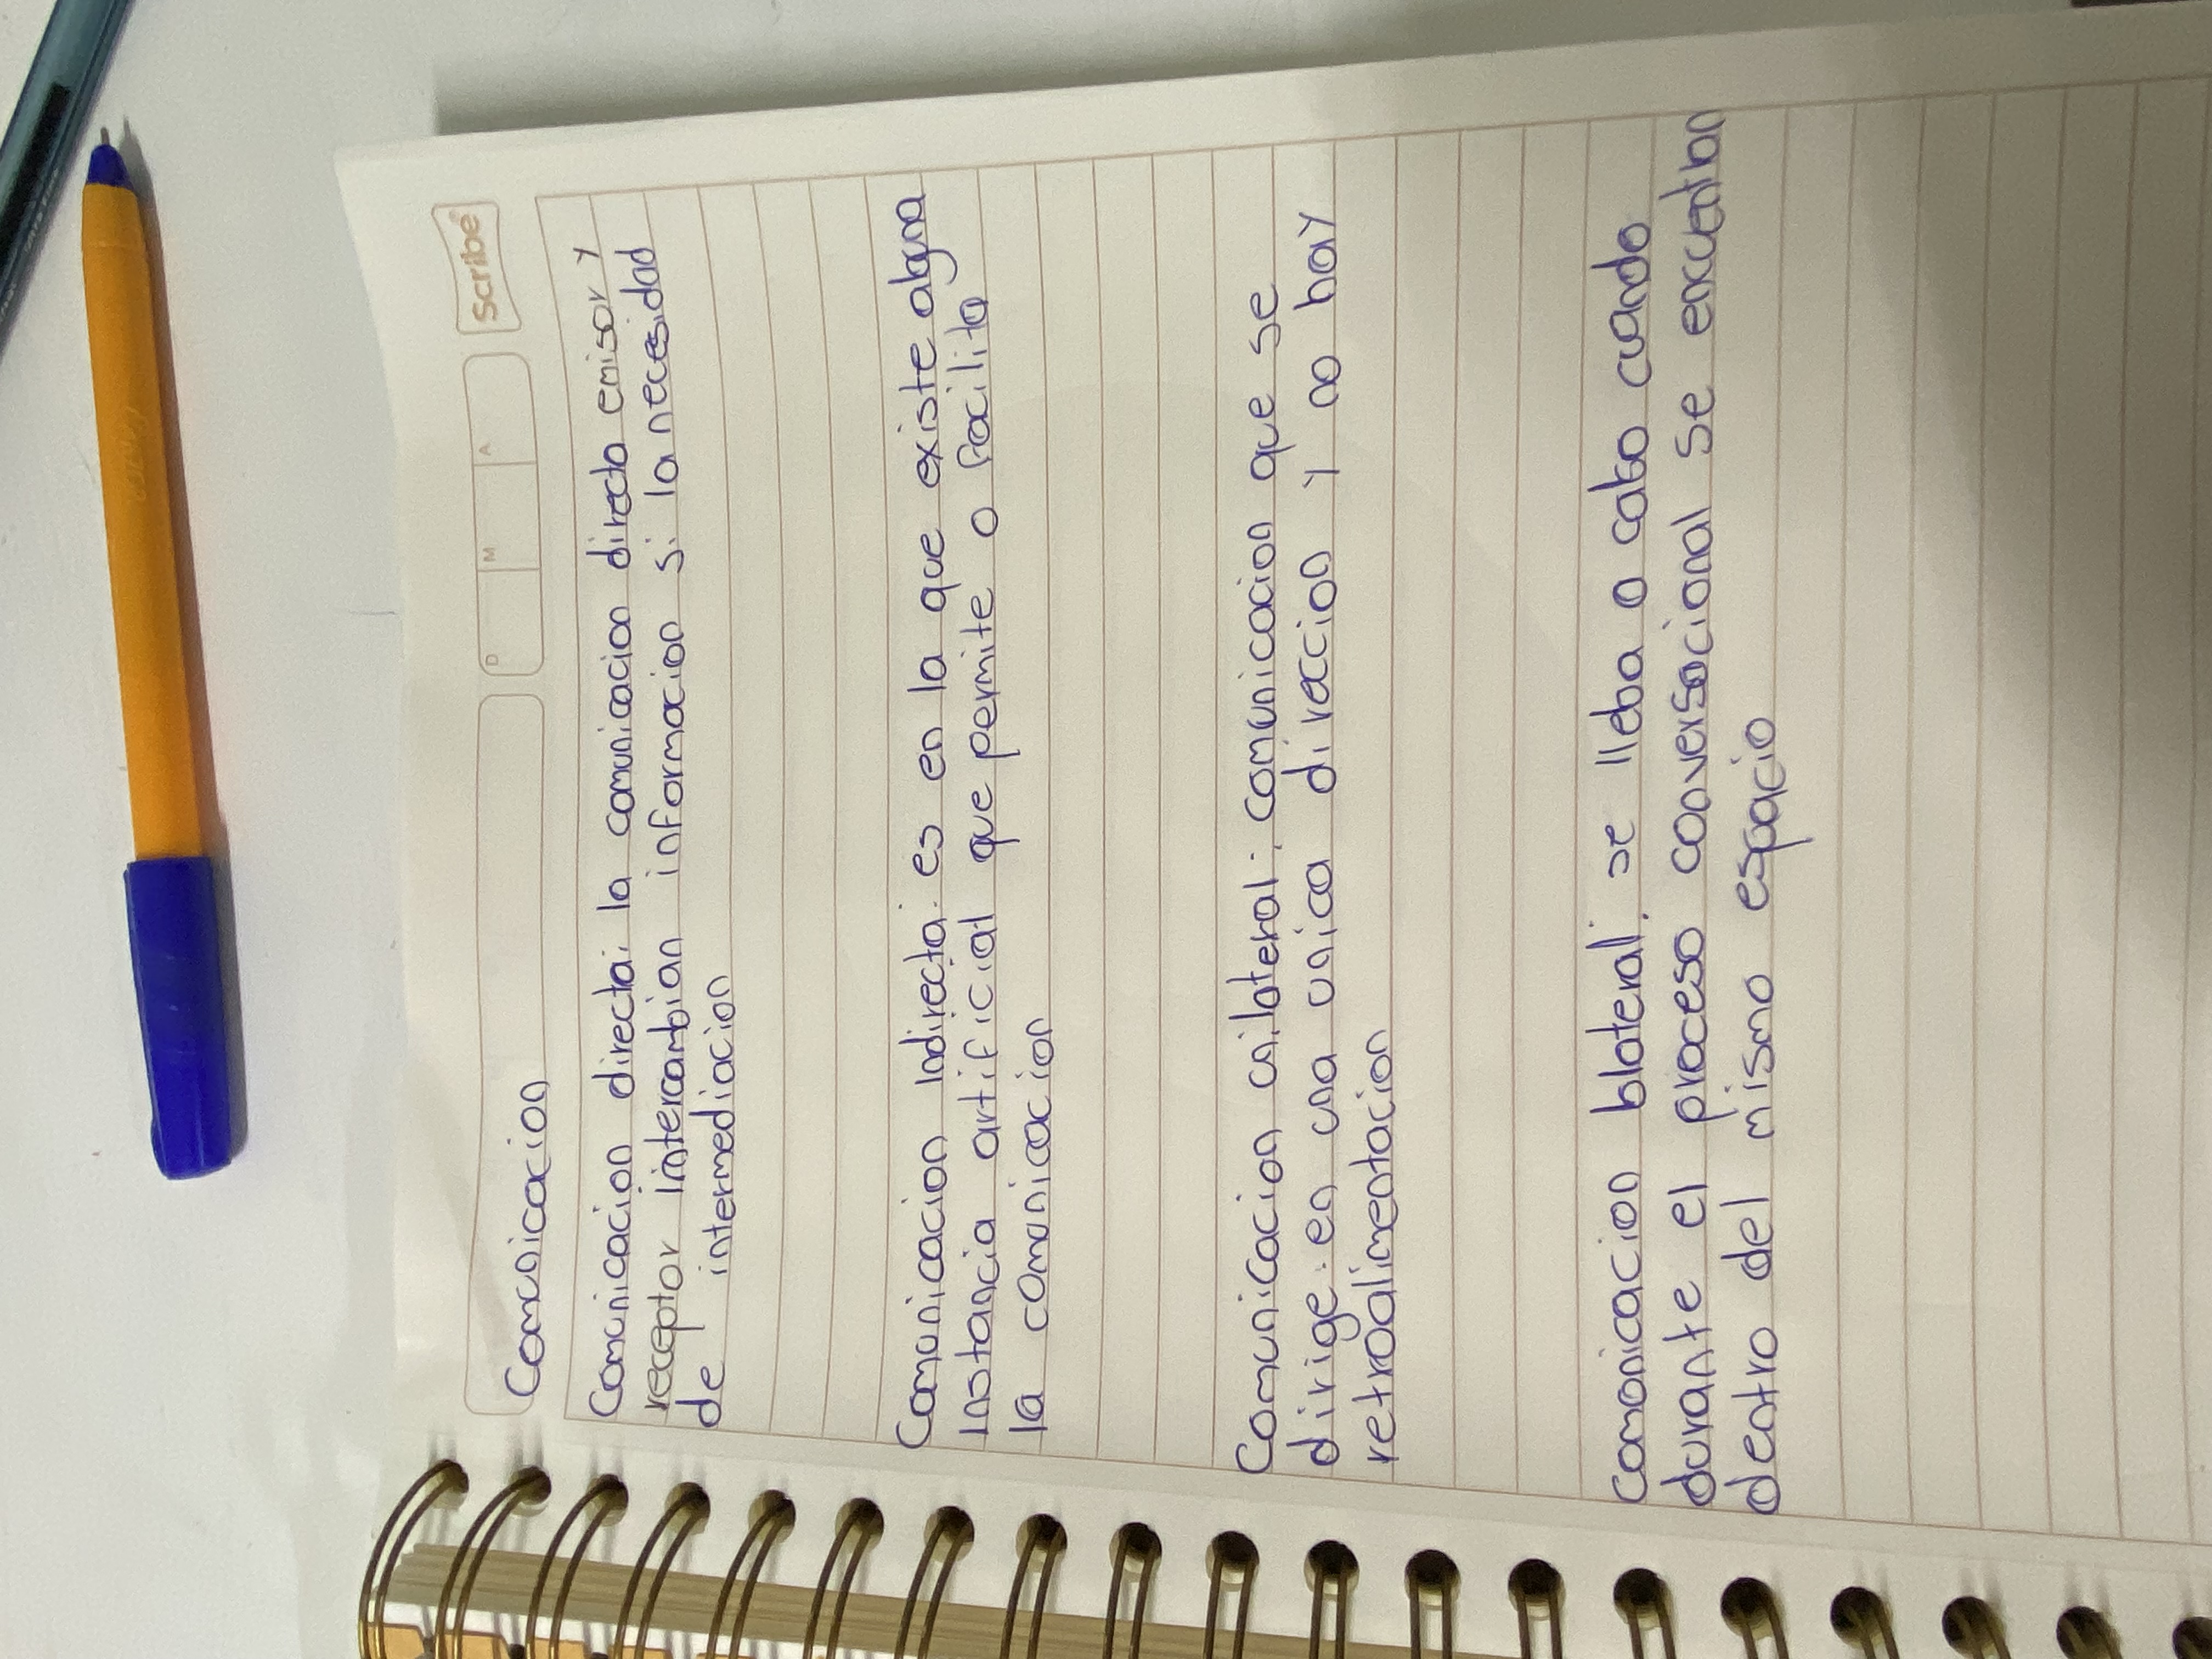 Scribe
D M A
Comunicacion
Comunicacion directa: la comunicacion directa emisor y
receptor intercambian informacion si la necesidad
de intermediacion
Comunicacion Indirecta: es en la que existe alguna
Instancia artificial que permite o facilita
la comunicacion
Comunicacion unilateral: comunicacion que se
dirige en una unica direccion y no hay
retroalimentacion
comonicacion blateral: se lleba a cabo cuando
durante el proceso conversacional se encuentran
dentro del mismo espacio